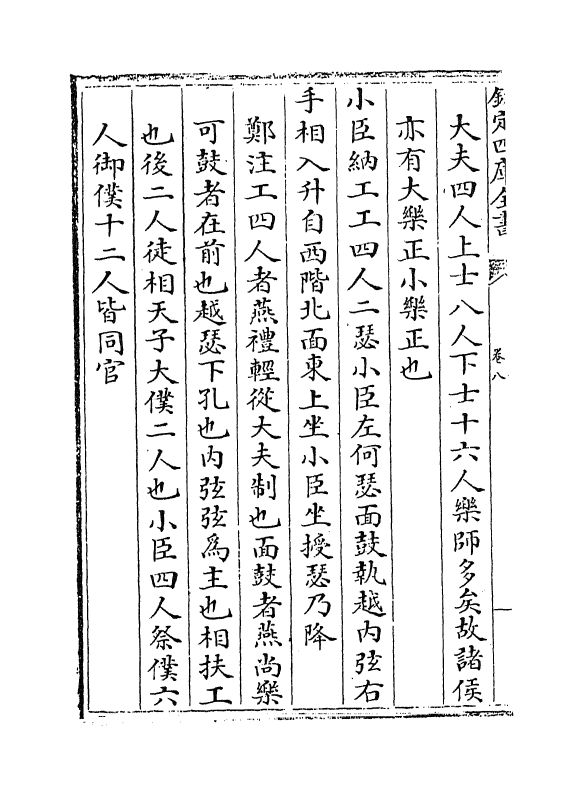 欽定四庫全書
卷八
大夫四人上士八人下士十六人樂師多矣故諸侯
亦有大樂正小樂正也
小臣納工工四人二瑟小臣左何瑟面鼓執越内弦右
手相入升自西階北面東上坐小臣坐授瑟乃降
鄭注工四人者燕禮輕從大夫制也面鼓者燕尚樂
可鼓者在前也越瑟下孔也内弦弦為主也相扶工
也後二人徒相天子大僕二人也小臣四人祭僕六
人御僕十二人皆同官